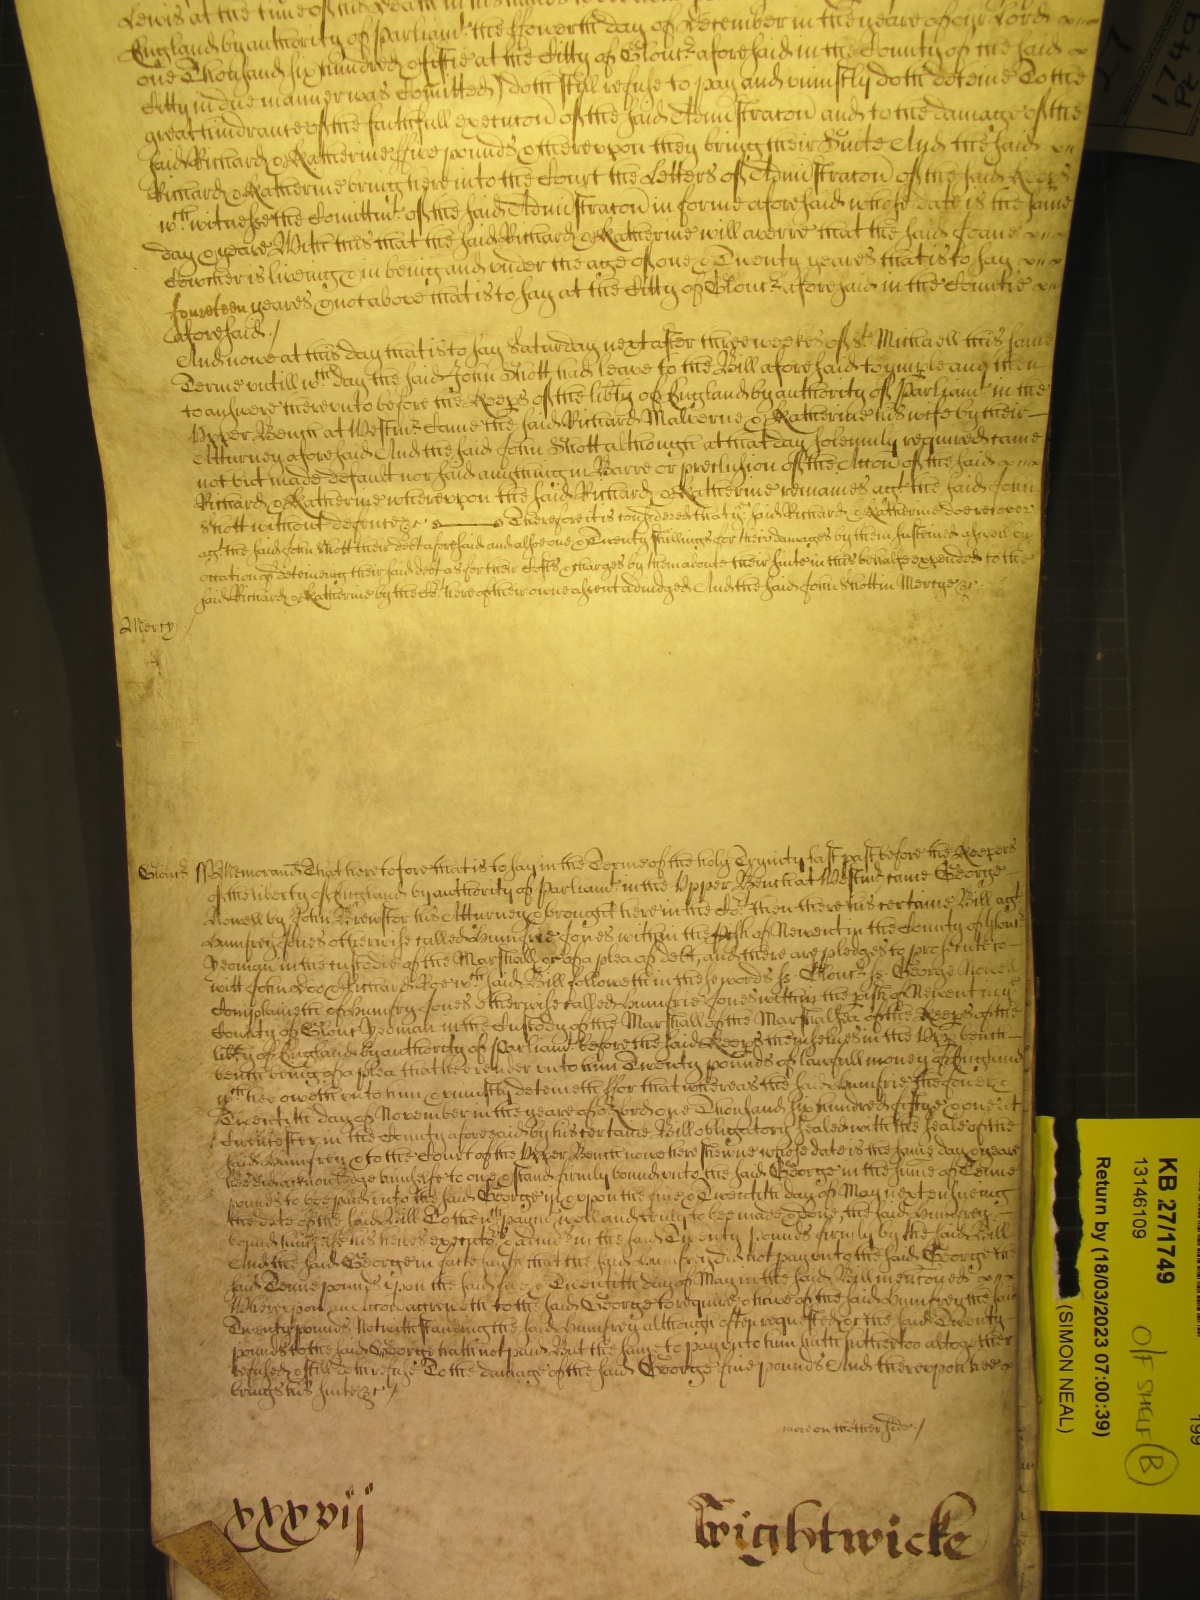 Lewis at the time of his death in his
England by authority of Parliamt the ffowerth day of December in the yeare of our Lord
one Thousand six hundred & fiftie at the Citty of Glouc aforesaid in the County of the said
Citty in due manner was Comitted) doth still refuse to pay and uniustly doth deteine To the
great hindrance of the faithfull execucon of the said Administracon and to the damage of the
said Richard & Katherine five pounds & thereupon they bring their Suite And the said
Richard & Katherine bring here into the Court the Letters of Administracon of the said Keeps
wch witnesse the Comitting of the said Administracon in forme aforesaid whose date is the same
day & yeare With this that the said Richard & Katherine will averre that the said Joane
Cowcher is liveing & in being and under the age of one & Twenty yeares that is to say
fourteen yeares & not above that is to say at the Citty of Glouc aforesaid in the Countie
aforesaid /
And nowe at this day that is to say Saturday next after three weekes of St Michaell this same
Terme untill wch day the said John Shott had leave to the Bill aforesaid to imple and then
to answere thereunto before the Keeps of the libty of England by authority of Parliamt in the
Upper Bench at Westmr Came the said Richard Malverne & Katherine his wife by their
Atturney aforesaid And the said John Shott although at that day solemnly required came
not but made default nor said anything in Barre or preclusion of the Accon of the said
Richard & Katherine whereupon the said Richard & Katherine remaines agt the said John
Shott without defence &c Therefore it is considered that ye said Richard & Katherine doe recover
agt the said John Shott their debt aforesaid and alsoe one & Twenty shillings for their damages by them susteined aswell by
occation of deteineing their said debt as for their Costs & charges by them aboute their suite in this behalfe expended to the
said Richard & Katherine by the Cot here of their owne assent adiudged And the said John Shott in Mercye &c
Mercy
Glouc Memorand That heretofore that is to say in the Terme of the holy Trynity last past before the Keepers
of the liberty of England by authority of Parliamt in the Upper Bench at Westmr came George
Nowell by John Brewster his Atturney & brought here in the Cot then there his certaine Bill agt
Humfrey Jones otherwise called Humfrie Jones within the pish of Newent in the County of Glouc
Yeoman in the custodie of the Marshall &c of a plea of debt, and there are pledges to prosecute to
witt John Doe & Richard Roe wch said Bill followeth in these words ss Glouc ss George Nowell
Complaineth of Humfry Jones otherwise called Humfrie Jones within the pish of Newent in ye
County of Glouc Yeoman in the Custody of the Marshall of the Marshalsea of the Keeps of the
libty of England by authority of Parliamt before the said Keeps themselves in the Upp bench
being of a plea that he render unto him Twenty pounds of lawfull money of England
wch hee oweth unto him & uniustly deteineth ffor that whereas the said Humfrie the
Twentith day of November in the yeare of or Lord one Thousand six hundred fiftye & one att
Cirencester in the County aforesaid by his certaine Bill obligatory sealed with the seale of the
said Humfrey & to the Court of the Upper Bench nowe here shewne whose date is the same day & yeare
hee did acknowledge himselfe to owe & stand firmly bound unto the said George in the summe of Tenne
pounds to bee paid unto the said George in & upon the five & Twentith day of May next ensueing
the date of the said Bill To the wch paymt well and truly to bee made & done, the said Humfrey
bound himselfe his heires executors & adms in the said Twenty pounds firmly by the said Bill
And the said George in facte saith that the said Humfrey did not pay unto the said George the
said Tenne pounds upon the said five & Twentith day of May in the said Bill mencioned
Whereupon an Accon accrueth to the said George to require & have of the said Humfrey the said
Twenty pounds Notwithstanding the said Humfrey although often requested &c the said Twenty
pounds to the said George hath not paid But the same to pay unto him hath hitherto altogether
refused & still doth refuse To the damage of the said George five pounds And thereupon hee
brings his suite &c /
more on thother side /
xxxvij
Wightwicke
KB 27/1749
13146109
O/F SHELF B
Return by (18/03/2023 07:00:39)
(SIMON NEAL)
199
27
1749